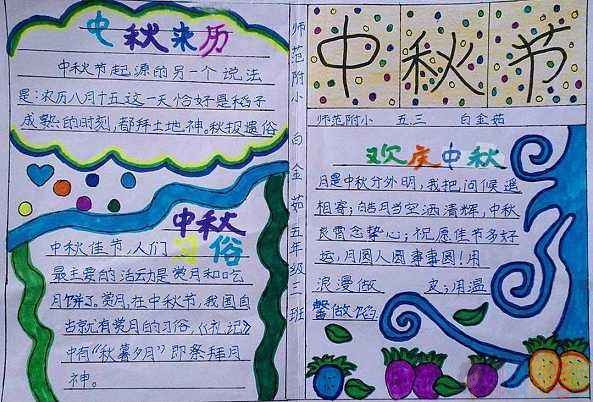 中秋来历
中秋节起源的另一个说法
是:农历八月十五这一天恰好是稻子
成熟的时刻,都拜土地神。秋报遗俗
中秋
习俗
中秋佳节,人们
最主要的活动是赏月和吃
月饼了。赏月,在中秋节,我国自
古就有赏月的习俗,《礼记》
中有“秋暮夕月”即祭拜月
神。
师范附小 白金茹五年级三班
中秋节
师范附小 五.三 白金茹
欢庆中秋
月是中秋分外明,我把问候遥
相寄;皓月当空洒清辉,中秋
良宵念挚心;祝愿佳节多好
运,月圆人圆事事圆!用
浪漫做 文;用温
馨做馅